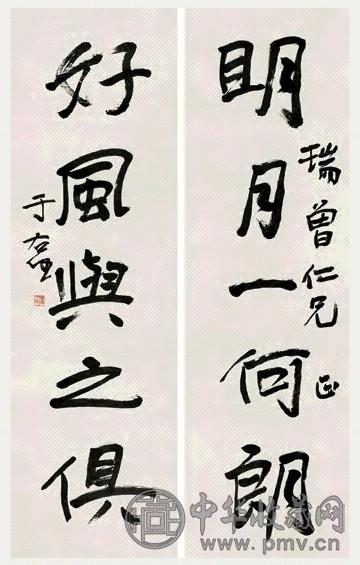 明月一何朗
瑞曾仁兄正
好風與之俱
于右任
中华收藏网
www.pmv.cn